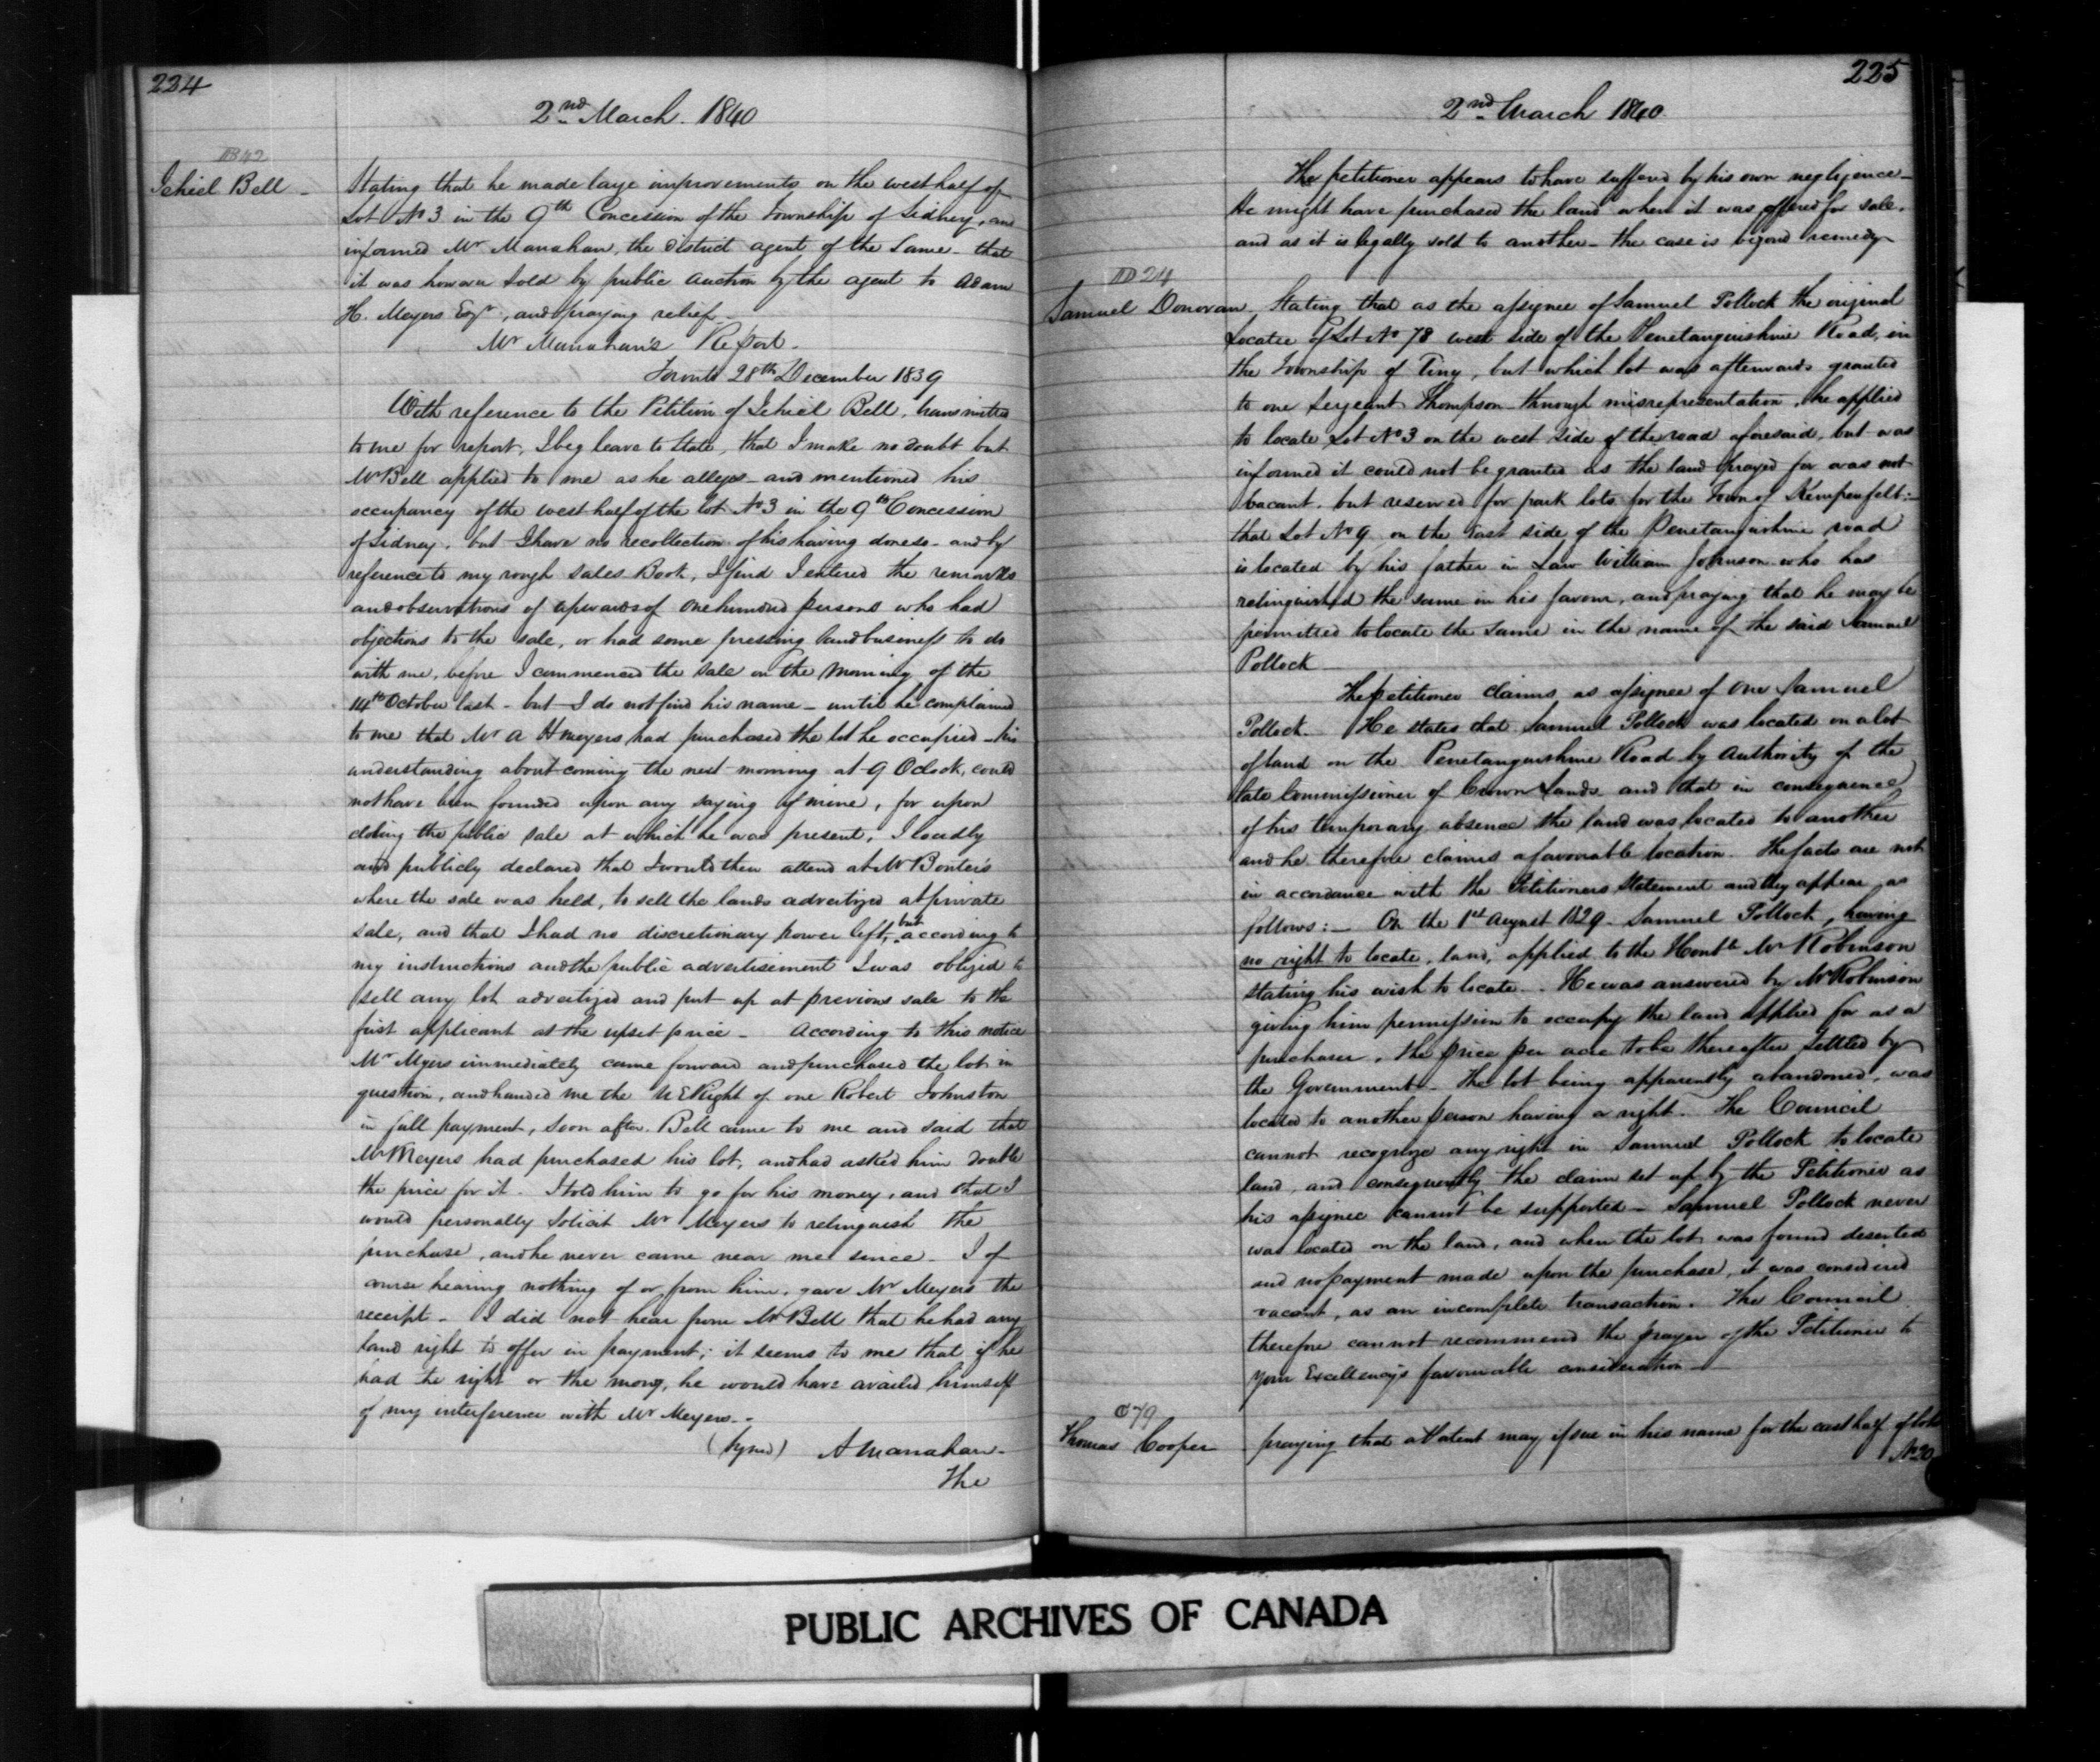 224
2nd March. 1840
B 42
Jehiel Bell - Stating that he made large improvements on the west half of
Lot No 3 in the 9th Concession of the Township of Sidney, and
informed Mr Manahan, the district agent of the Same - that
it was however sold by public auction by the agent to Adam
H. Meyers Esqr, and praying relief -
Mr Manahan's Report.
Toronto 28th December 1839
With reference to the Petition of Jehiel Bell, transmitted
to me for report, I beg leave to state, that I make no doubt but
Mr Bell applied to me as he alleges - and mentioned his
occupancy of the west half of the lot No 3 in the 9th Concession
of Sidney, but I have no recollection of his having done so - and by
reference to my rough sales Book, I find I entered the remarks
and observations of upwards of one hundred persons who had
objections to the sale, or had some pressing land business to do
with me, before I commenced the sale on the morning of the
14th October last - but I do not find his name - until he complained
to me that Mr A H Meyers had purchased the lot he occupied - his
understanding about coming the next morning at 9 O'clock, could
not have been founded upon any saying of mine, for upon
closing the public sale at which he was present, I loudly
and publicly declared that I would then attend at Mr Bonter's
where the sale was held, to sell the lands advertized at private
sale, and that I had no discretionary power left, but according to
my instructions and the public advertisement I was obliged to
sell any lot advertized and put up at previous sale to the
first applicant at the upset price - According to this notice
Mr Myers immediately came forward and purchased the lot in
question, and handed me the U E Right of one Robert Johnston
in full payment, soon after Bell came to me and said that
Mr Meyers had purchased his lot, and had asked him double
the price for it. I told him to go for his money, and that I
would personally solicit Mr Meyers to relinquish the
purchase, and he never came near me since - I of
course hearing nothing of or from him, gave Mr Meyers the
receipt - I did not hear from Mr Bell that he had any
land right to offer in payment; it seems to me that if he
had the right or the money, he would have availed himself
of my interference with Mr Meyers -
(Signed) A Manahan -
The
225
2nd March 1840
The petitioner appears to have suffered by his own negligence -
He might have purchased the land when it was offered for sale,
and as it is legally sold to another - the case is beyond remedy
D 24
Samuel Donovan, Stating that as the assignee of Samuel Pollock the original
Locatee of Lot No 78 west side of the Penetanguishine Road, in
the Township of Tiny, but which lot was afterwards granted
to one Sergeant Thompson through misrepresentation, he applied
to locate Lot No 3 on the west side of the road aforesaid, but was
informed it could not be granted as the land prayed for was not
vacant, but reserved for park lots for the Town of Kempenfelt:-
that Lot No 9 on the East side of the Penetanguishine road
is located by his father in Law William Johnson who has
relinquished the same in his favour, and praying that he may be
permitted to locate the same in the name of the said Samuel
Pollock
The petitioner claims as assignee of one Samuel
Pollock. He states that Samuel Pollock was located on a lot
of land on the Penetanguishine Road by Authority of the
late Commissioner of Crown Lands and that in consequence
of his temporary absence the land was located to another
and he therefore claims a favourable location. The facts are not
in accordance with the Petitioners statement and they appear as
follows:- On the 1st August 1829 - Samuel Pollock, having
no right to locate, land, applied to the Honble Mr Robinson
stating his wish to locate. - He was answered by Mr Robinson
giving him permission to occupy the land applied for as a
purchaser, the price per acre to be thereafter settled by
the Government - The lot being apparently abandoned, was
located to another person having a right. The Council
cannot recognize any right in Samuel Pollock to locate
land, and consequently the claim set up by the Petitioner as
his assignee cannot be supported - Samuel Pollock never
was located on the land, and when the lot was found deserted
and no payment made upon the purchase, it was considered
vacant, as an incomplete transaction. The Council
therefore cannot recommend the prayer of the Petitioner to
your Excellency's favourable consideration -
C 79
Thomas Cooper praying that a Patent may issue in his name for the east half of Lot
No 20
PUBLIC ARCHIVES OF CANADA